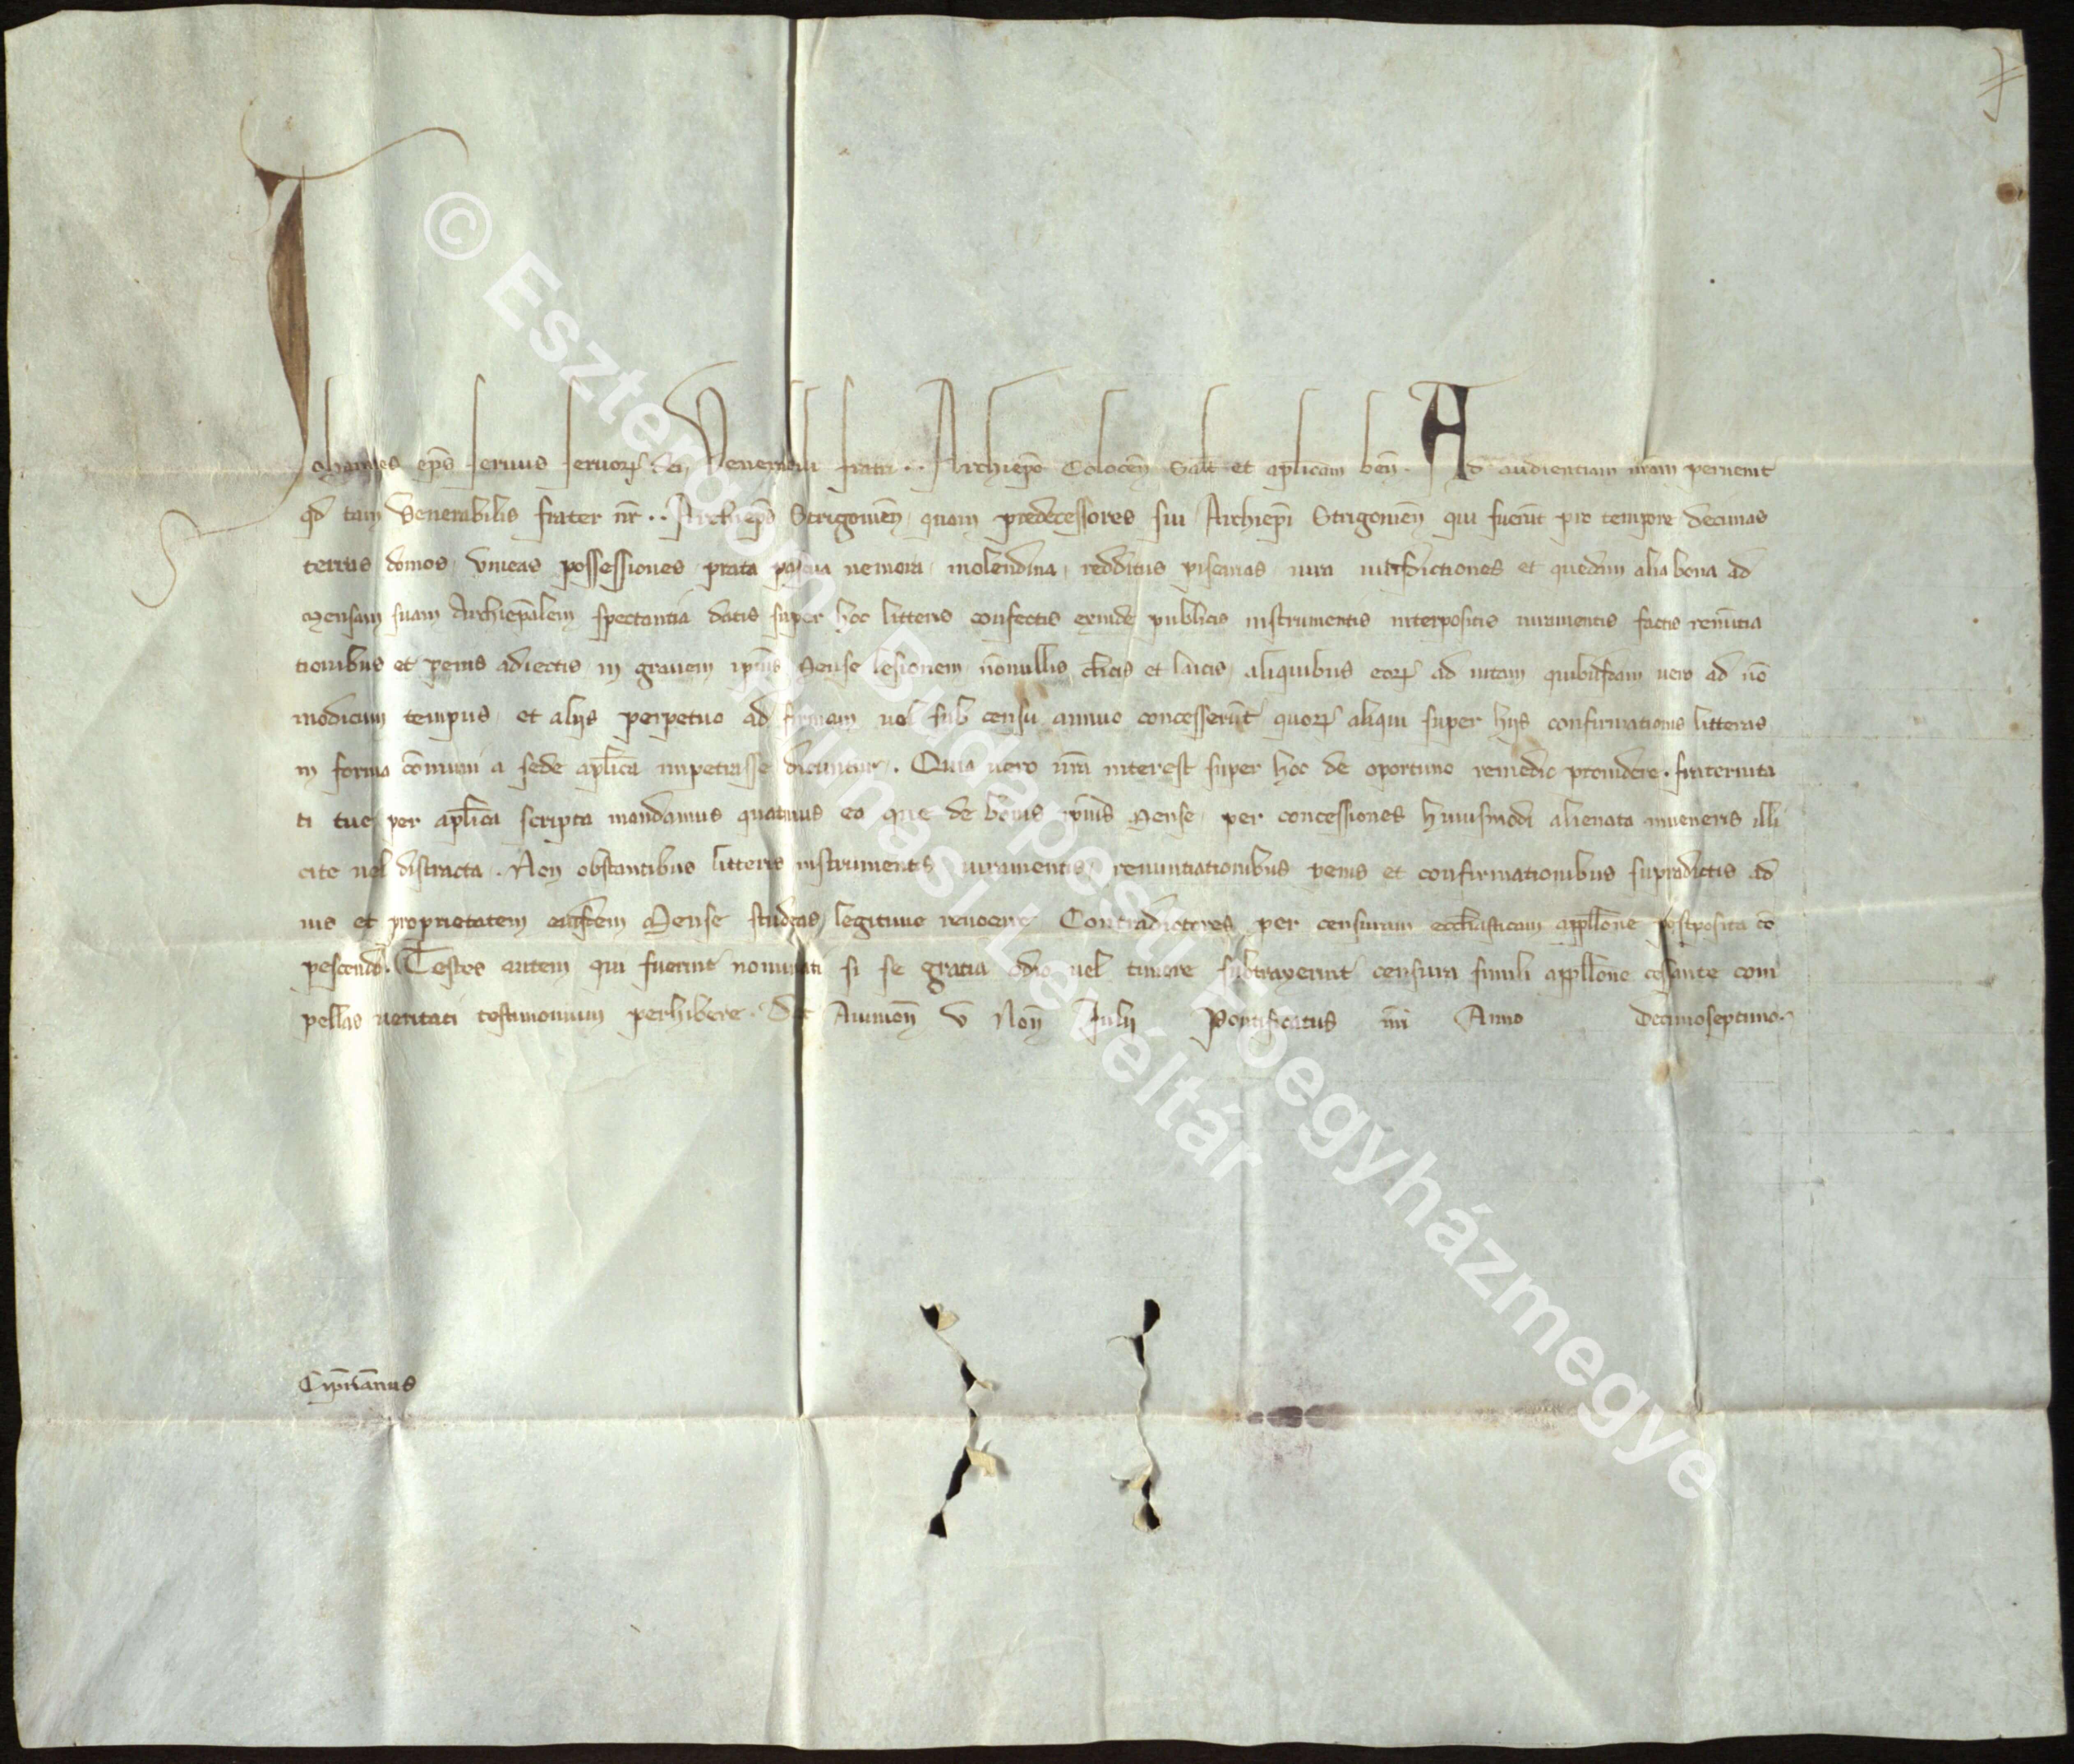 Johannes ep̄s seruus seruoꝝ dei Venerabili fratri .. Archiep̄o Colocen̄ Salt̄ et ap̄licam ben̄. Ad audientiam nr̄am peruenit
qd̄ tam Venerabilis frater nr̄ .. Archiep̄s Strigonien̄ quam predecessores sui Archiep̄i Strigonien̄ qui fuerūt pro tempore decimas
terras domos vineas possessiones prata pascua nemora molendina redditus piscarias iura iurisdictiones et quedam alia bona ad
Mensam suam Archiep̄alem spectantia datis super hoc litteris confectis exinde publicis instrumentis interpositis iuramentis factis renūtia
tionibus et penis adiectis in grauem ip̄ius Mense lesionem nōnullis cl̄icis et laicis aliquibus eoꝝ ad uitam quibusdam uero ad nō
modicum tempus et alijs perpetuo ad firmam uel sub censu annuo concesserūt quoꝝ aliqui super hijs confirmationis litteras
in forma cōmuni a sede ap̄lica impetrasse dicuntur. Quia uero nr̄a interest super hoc de oportuno remedio prouidere. fraternita
ti tue per ap̄lica scripta mandamus quatinus ea que de bonis ip̄ius Mense per concessiones huiusmodi alienata inueneris illi
cite uel distracta. Non obstantibus litteris instrumentis iuramentis renuntiationibus penis et confirmationibus supradictis ad
ius et proprietatem eiusdem Mense studeas legitime reuocare Contradictores per censuram eccl̄iasticam appell̄one postposita cō
pescendo. Testes autem qui fuerint nominati si se gratia odio uel timore subtraxerint censura simili appell̄one cessante com
pellas ueritati testimonium perhibere. Dat̄ Auinion̄ v Non̄ Julij Pontificatus nr̄i Anno Decimoseptimo.
Cip̄rianus
© Esztergom-Budapesti Főegyházmegye
Prímási Levéltár